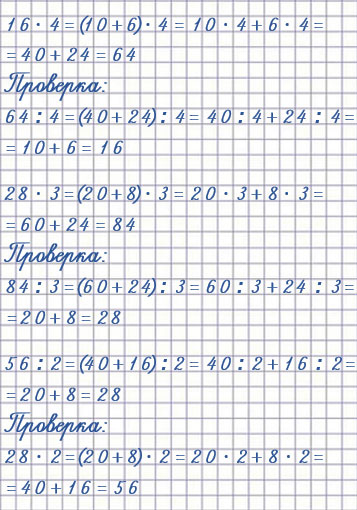 16 · 4 = (10+6) · 4 = 10 · 4 + 6 · 4 =
= 40 + 24 = 64
Проверка:
64 : 4 = (40+24) : 4 = 40 : 4 + 24 : 4 =
= 10 + 6 = 16
28 · 3 = (20+8) · 3 = 20 · 3 + 8 · 3 =
= 60 + 24 = 84
Проверка:
84 : 3 = (60+24) : 3 = 60 : 3 + 24 : 3 =
= 20 + 8 = 28
56 : 2 = (40+16) : 2 = 40 : 2 + 16 : 2 =
= 20 + 8 = 28
Проверка:
28 · 2 = (20+8) · 2 = 20 · 2 + 8 · 2 =
= 40 + 16 = 56